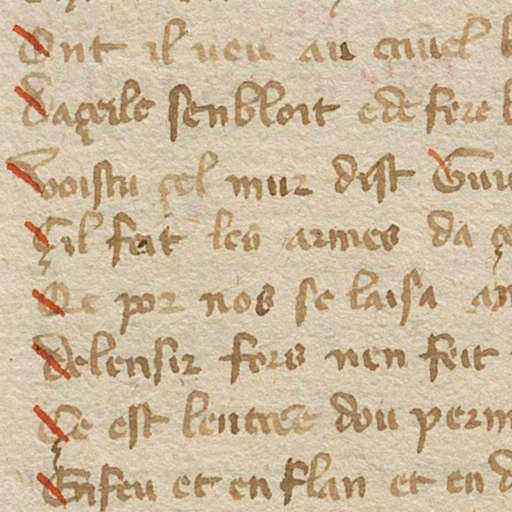 Ont il veu au cruel
Daçerle senbloit e de fere
Voistu çel mur dist Gui
Çil feit les armes da
Qe por nos se laisa an
delensir fors nen feit
Çe est lentree dou perm
Enfeu et en flan et en d